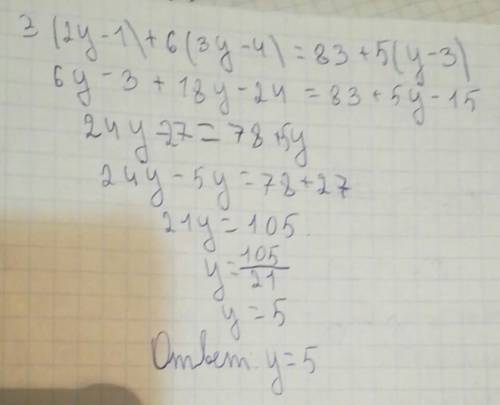 3(2y-1)+6(3y-4)=83+5(y-3)
6y-3+18y-24=83+5y-15
24y-27=78+5y
24y-5y=78+27
21y=105
y=105/21
y=5
Ответ. y=5